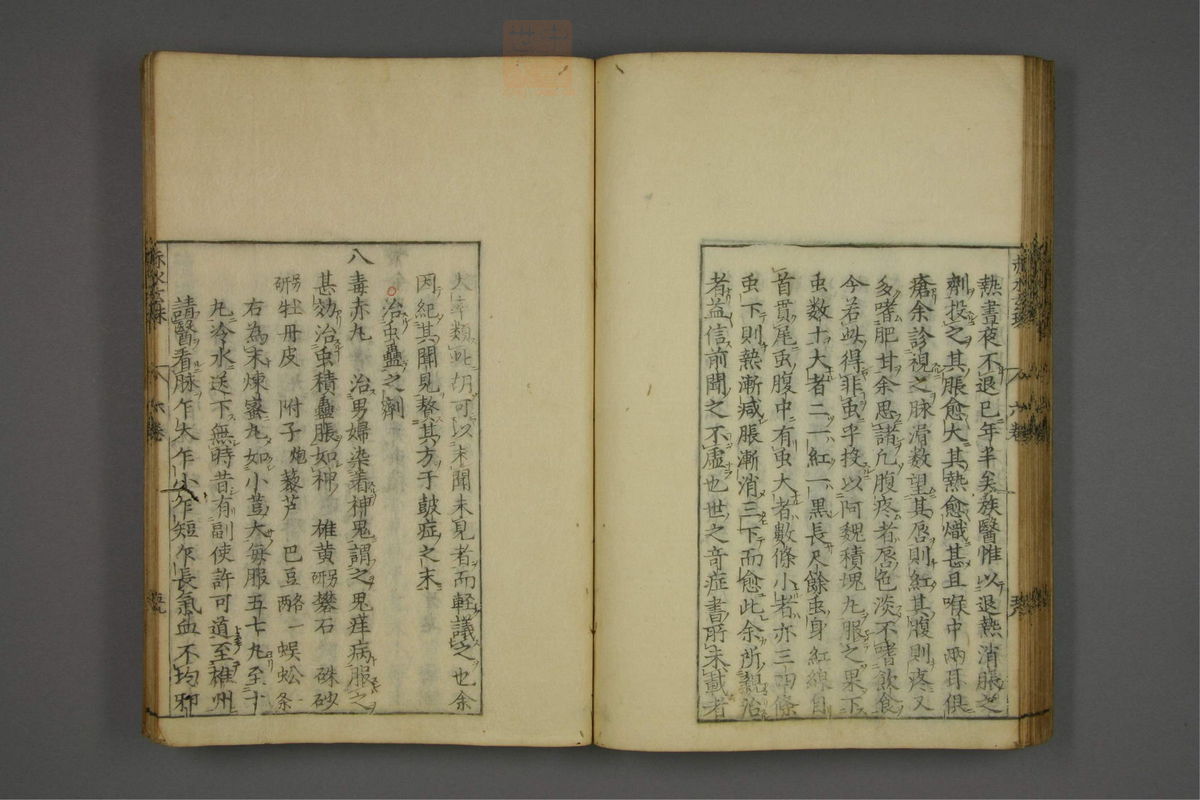 熱晝夜不退已年半矣族醫惟以退熱消脹之
劑投之其脹愈大其熱愈熾甚且喉中兩耳俱
瘡余診視之脉滑数望其唇則紅其腹則疼又
多嗜肥甘余思諸凢腹疼者唇色淡不嗜飲食
今若此得非虫乎投以阿魏積塊丸服之果下
虫数十大者二一紅一黒長尺餘虫身紅線自
首貫尾虫腹中有虫大者數條小者亦三四條
虫下則熱漸减脹漸消三下而愈此余所親治
者益信前聞之不虚也世之奇症書所未載者
大率類此胡可以未聞未見者而軽議之也余
因紀其聞見贅其方于皷症之末
治虫蠱之劑
八毒赤丸 治男婦染着神鬼謂之鬼疰病服之
甚効治虫積蠱脹如神 雄黄研礬石 硃砂
研牡丹皮 附子炮藜芦 巴豆 蜈蚣一条
右為末煉蜜丸如小荳大毎服五七丸至十
丸冷水送下無時昔有副使許可道至椎州
請醫看脉乍大乍小乍短乍長氣血不均邪